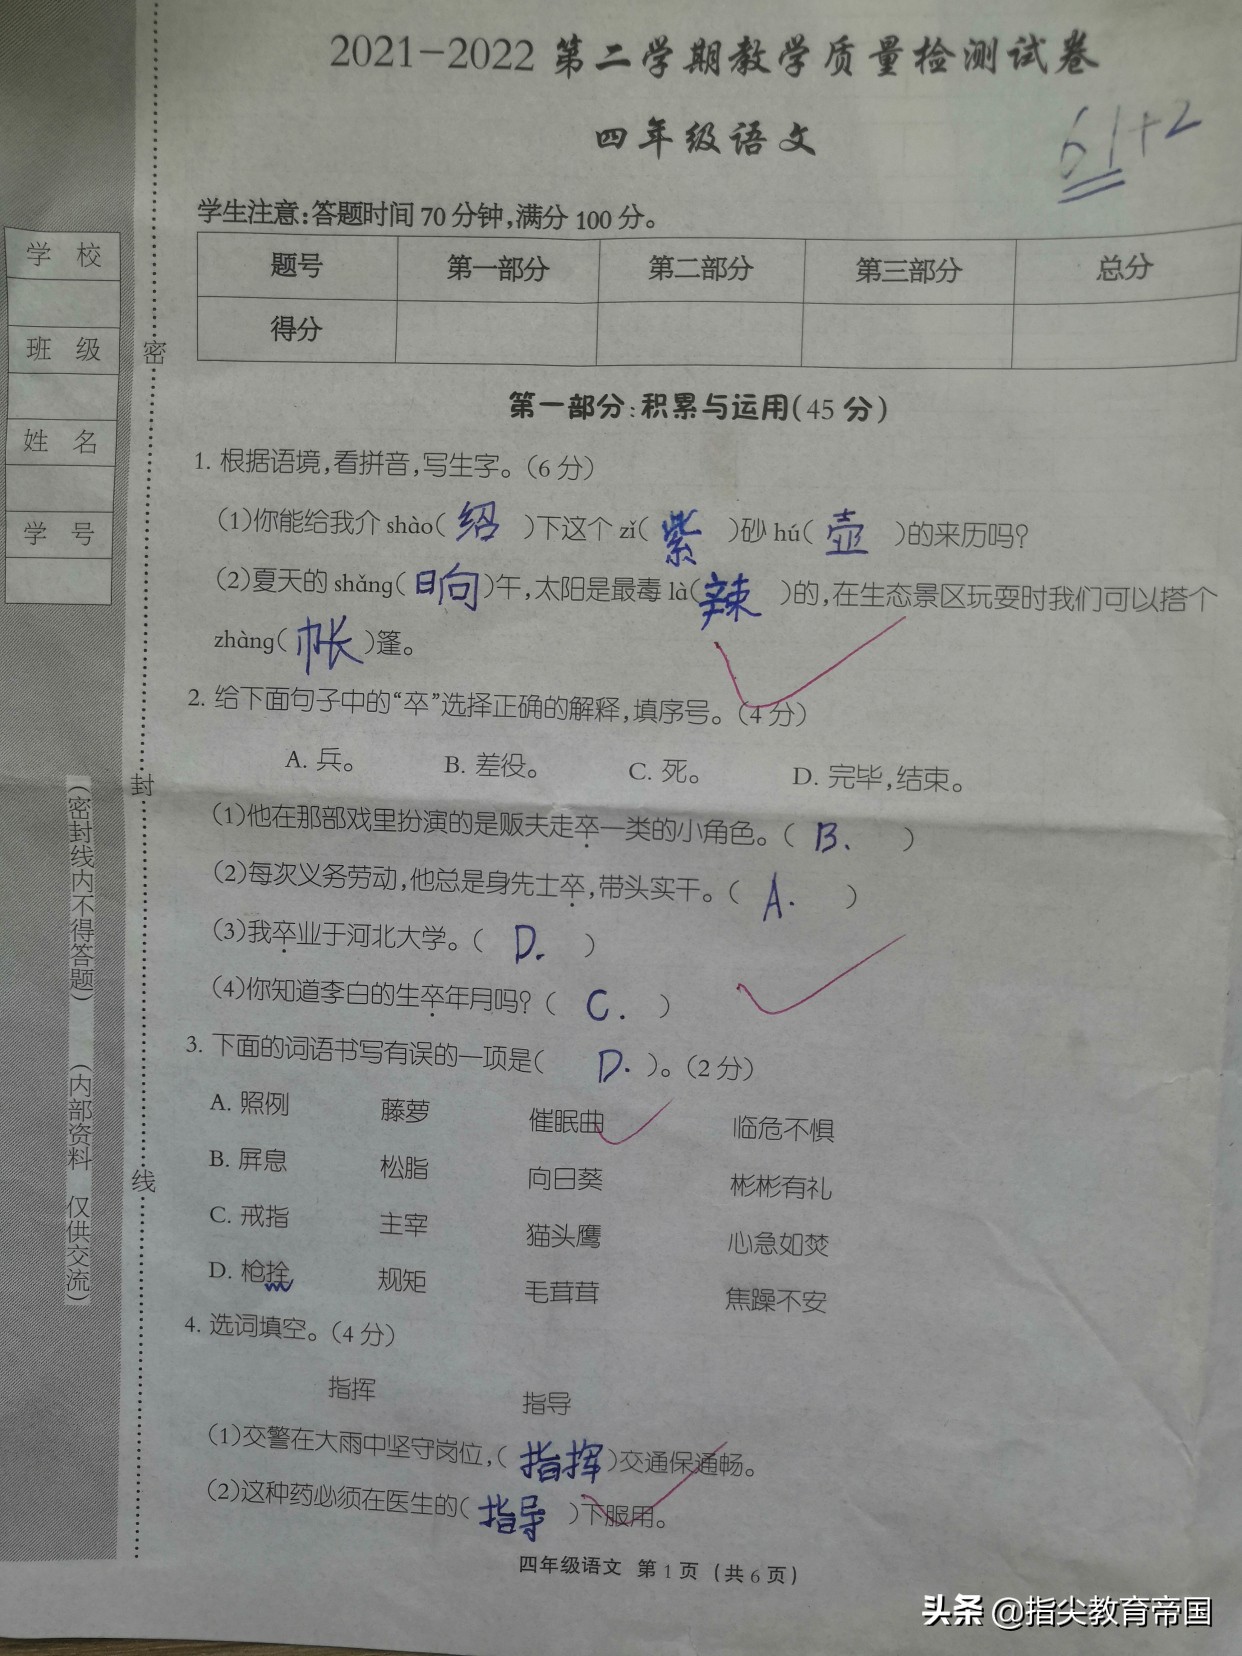 2021-2022 第二学期教学质量检测试卷
四年级语文
61+2
学生注意:答题时间 70 分钟,满分 100 分。
题号 第一部分 第二部分 第三部分 总分
得分
学 校
班 级
姓 名
学 号
密
封
线
(密封线内不得答题) (内部资料 仅供交流)
第一部分:积累与运用(45 分)
1. 根据语境,看拼音,写生字。(6 分)
(1)你能给我介 shào( 绍 )下这个 zǐ( 紫 )砂 hú( 壶 )的来历吗?
(2)夏天的 shǎng( 晌 )午,太阳是最毒 là( 辣 )的,在生态景区玩耍时我们可以搭个
zhàng( 帐 )篷。
2. 给下面句子中的“卒”选择正确的解释,填序号。(4 分)
A. 兵。 B. 差役。 C. 死。 D. 完毕,结束。
(1)他在那部戏里扮演的是贩夫走卒一类的小角色。( B. )
(2)每次义务劳动,他总是身先士卒,带头实干。( A. )
(3)我卒业于河北大学。( D. )
(4)你知道李白的生卒年月吗?( C. )
3. 下面的词语书写有误的一项是( D. )。(2 分)
A. 照例 藤萝 催眠曲 临危不惧
B. 屏息 松脂 向日葵 彬彬有礼
C. 戒指 主宰 猫头鹰 心急如焚
D. 枪拴 规矩 毛茸茸 焦躁不安
4. 选词填空。(4 分)
指挥 指导
(1)交警在大雨中坚守岗位,( 指挥 )交通保通畅。
(2)这种药必须在医生的( 指导 )下服用。
四年级语文 第 1 页 (共 6 页)
头条 @指尖教育帝国